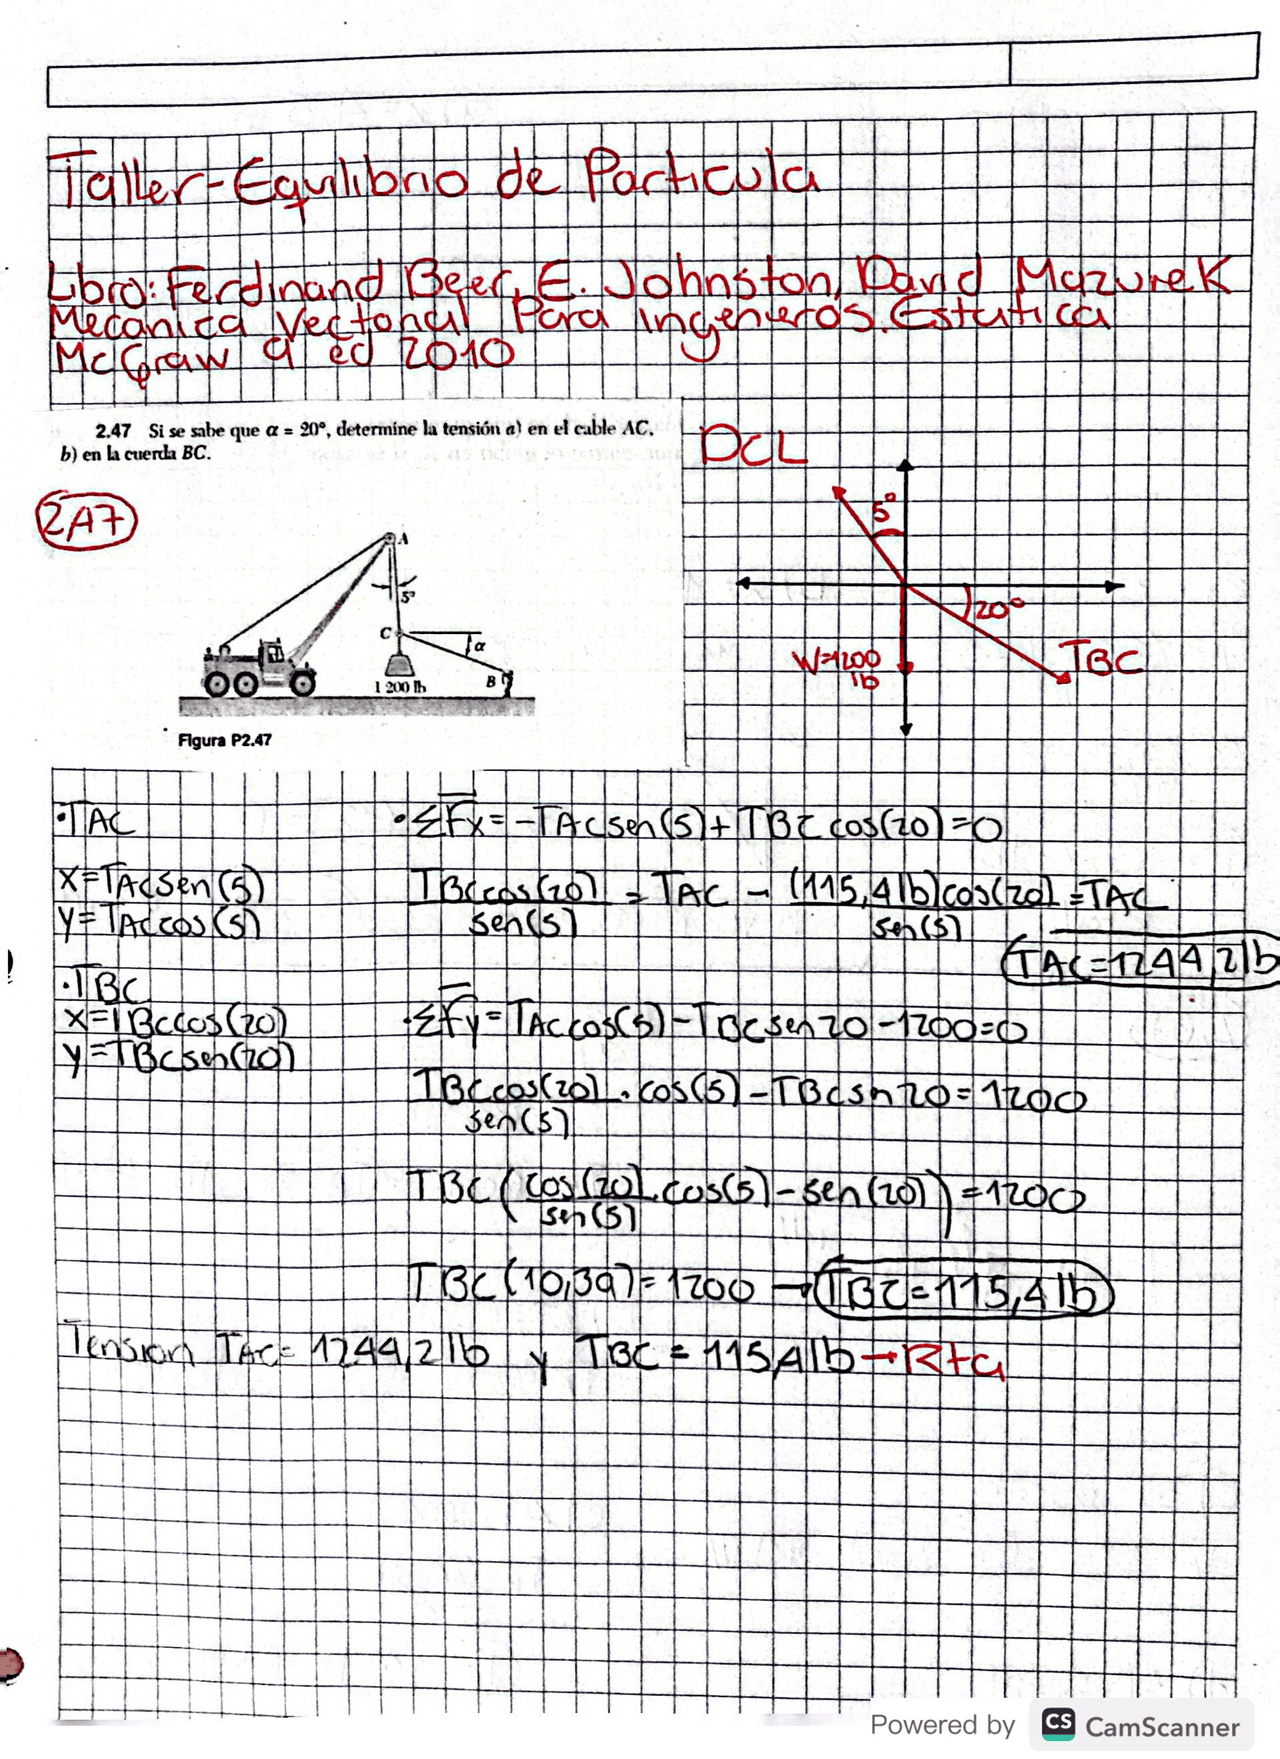 Taller-Equilibrio de Particula
Libro: Ferdinand Beer, E. Johnston, David Mazurek
Mecanica Vectorial Para ingenieros. Estatica
McGraw 9 ed 2010
2.47 Si se sabe que α = 20°, determine la tensión a) en el cable AC,
b) en la cuerda BC.
2,47
A
5°
C
α
B
1 200 lb
Figura P2.47
DCL
5°
20°
W=1200
lb
TBC
·TAC
X=TAC sen(5)
y=TAC cos(5)
·TBC
X=TBC cos(20)
y=TBC sen(20)
·ΣFx=-TAC sen(5)+TBC cos(20)=0
TBC cos(20)/sen(5) = TAC - (115,4lb)cos(20)/sen(5) =TAC
TAC=1244,2lb
·ΣFy=TAC cos(5)-TBC sen20-1200=0
TBC cos(20)/sen(5) . cos(5)-TBC sn20=1200
TBC(cos(20)/sen(5) .cos(5)-sen(20))=1200
TBC(10,39)=1200 → TBC=115,4lb
Tension TAC= 1244,2lb y TBC = 115,4lb→Rta
Powered by CS CamScanner